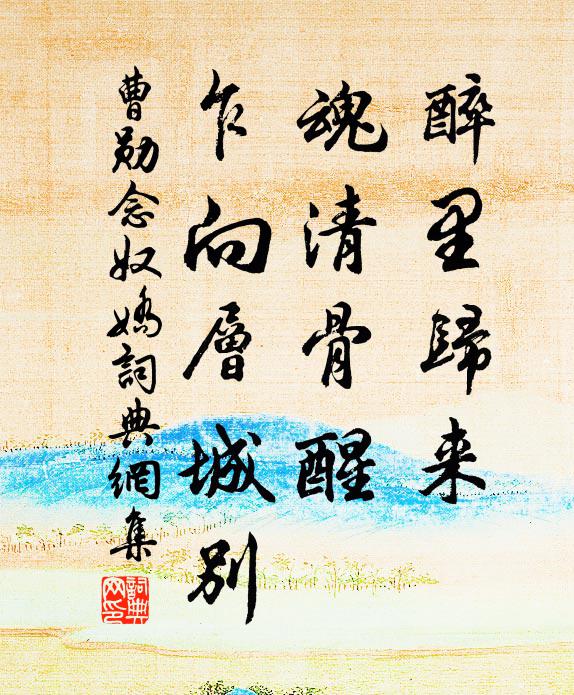 醉里歸来
魂清骨醒
乍向層城別
曹勛念奴嬌詞典網集
詞典網印